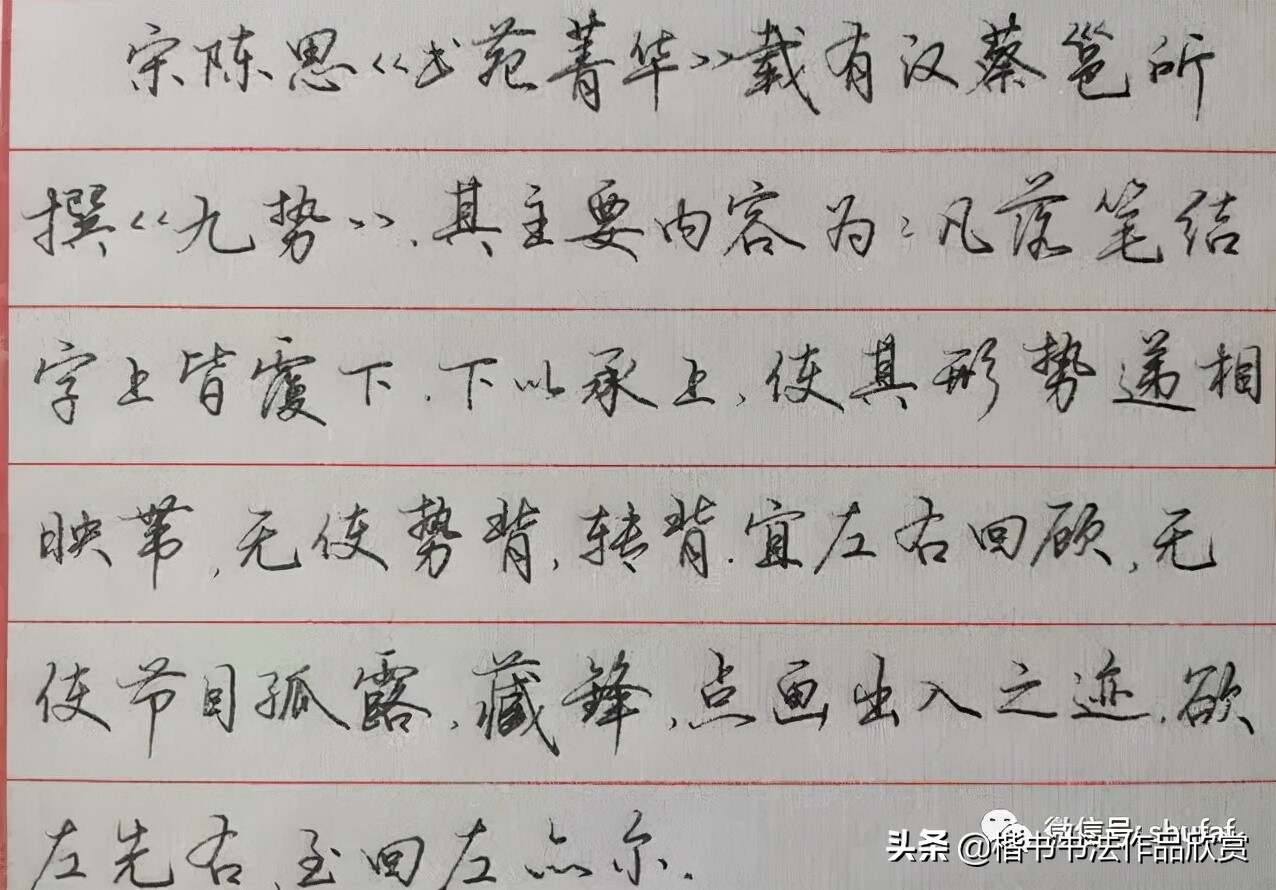 宋陈思《书苑菁华》载有汉蔡邕所
撰《九势》.其主要内容为:凡落笔结
字上皆覆下.下以承上,使其形势递相
映带,无使势背,转背.宜左右回顾,无
使节目孤露,藏锋,点画出入之迹.欲
左先右,至回左亦尔.
微信号: shufaf
头条 @楷书书法作品欣赏